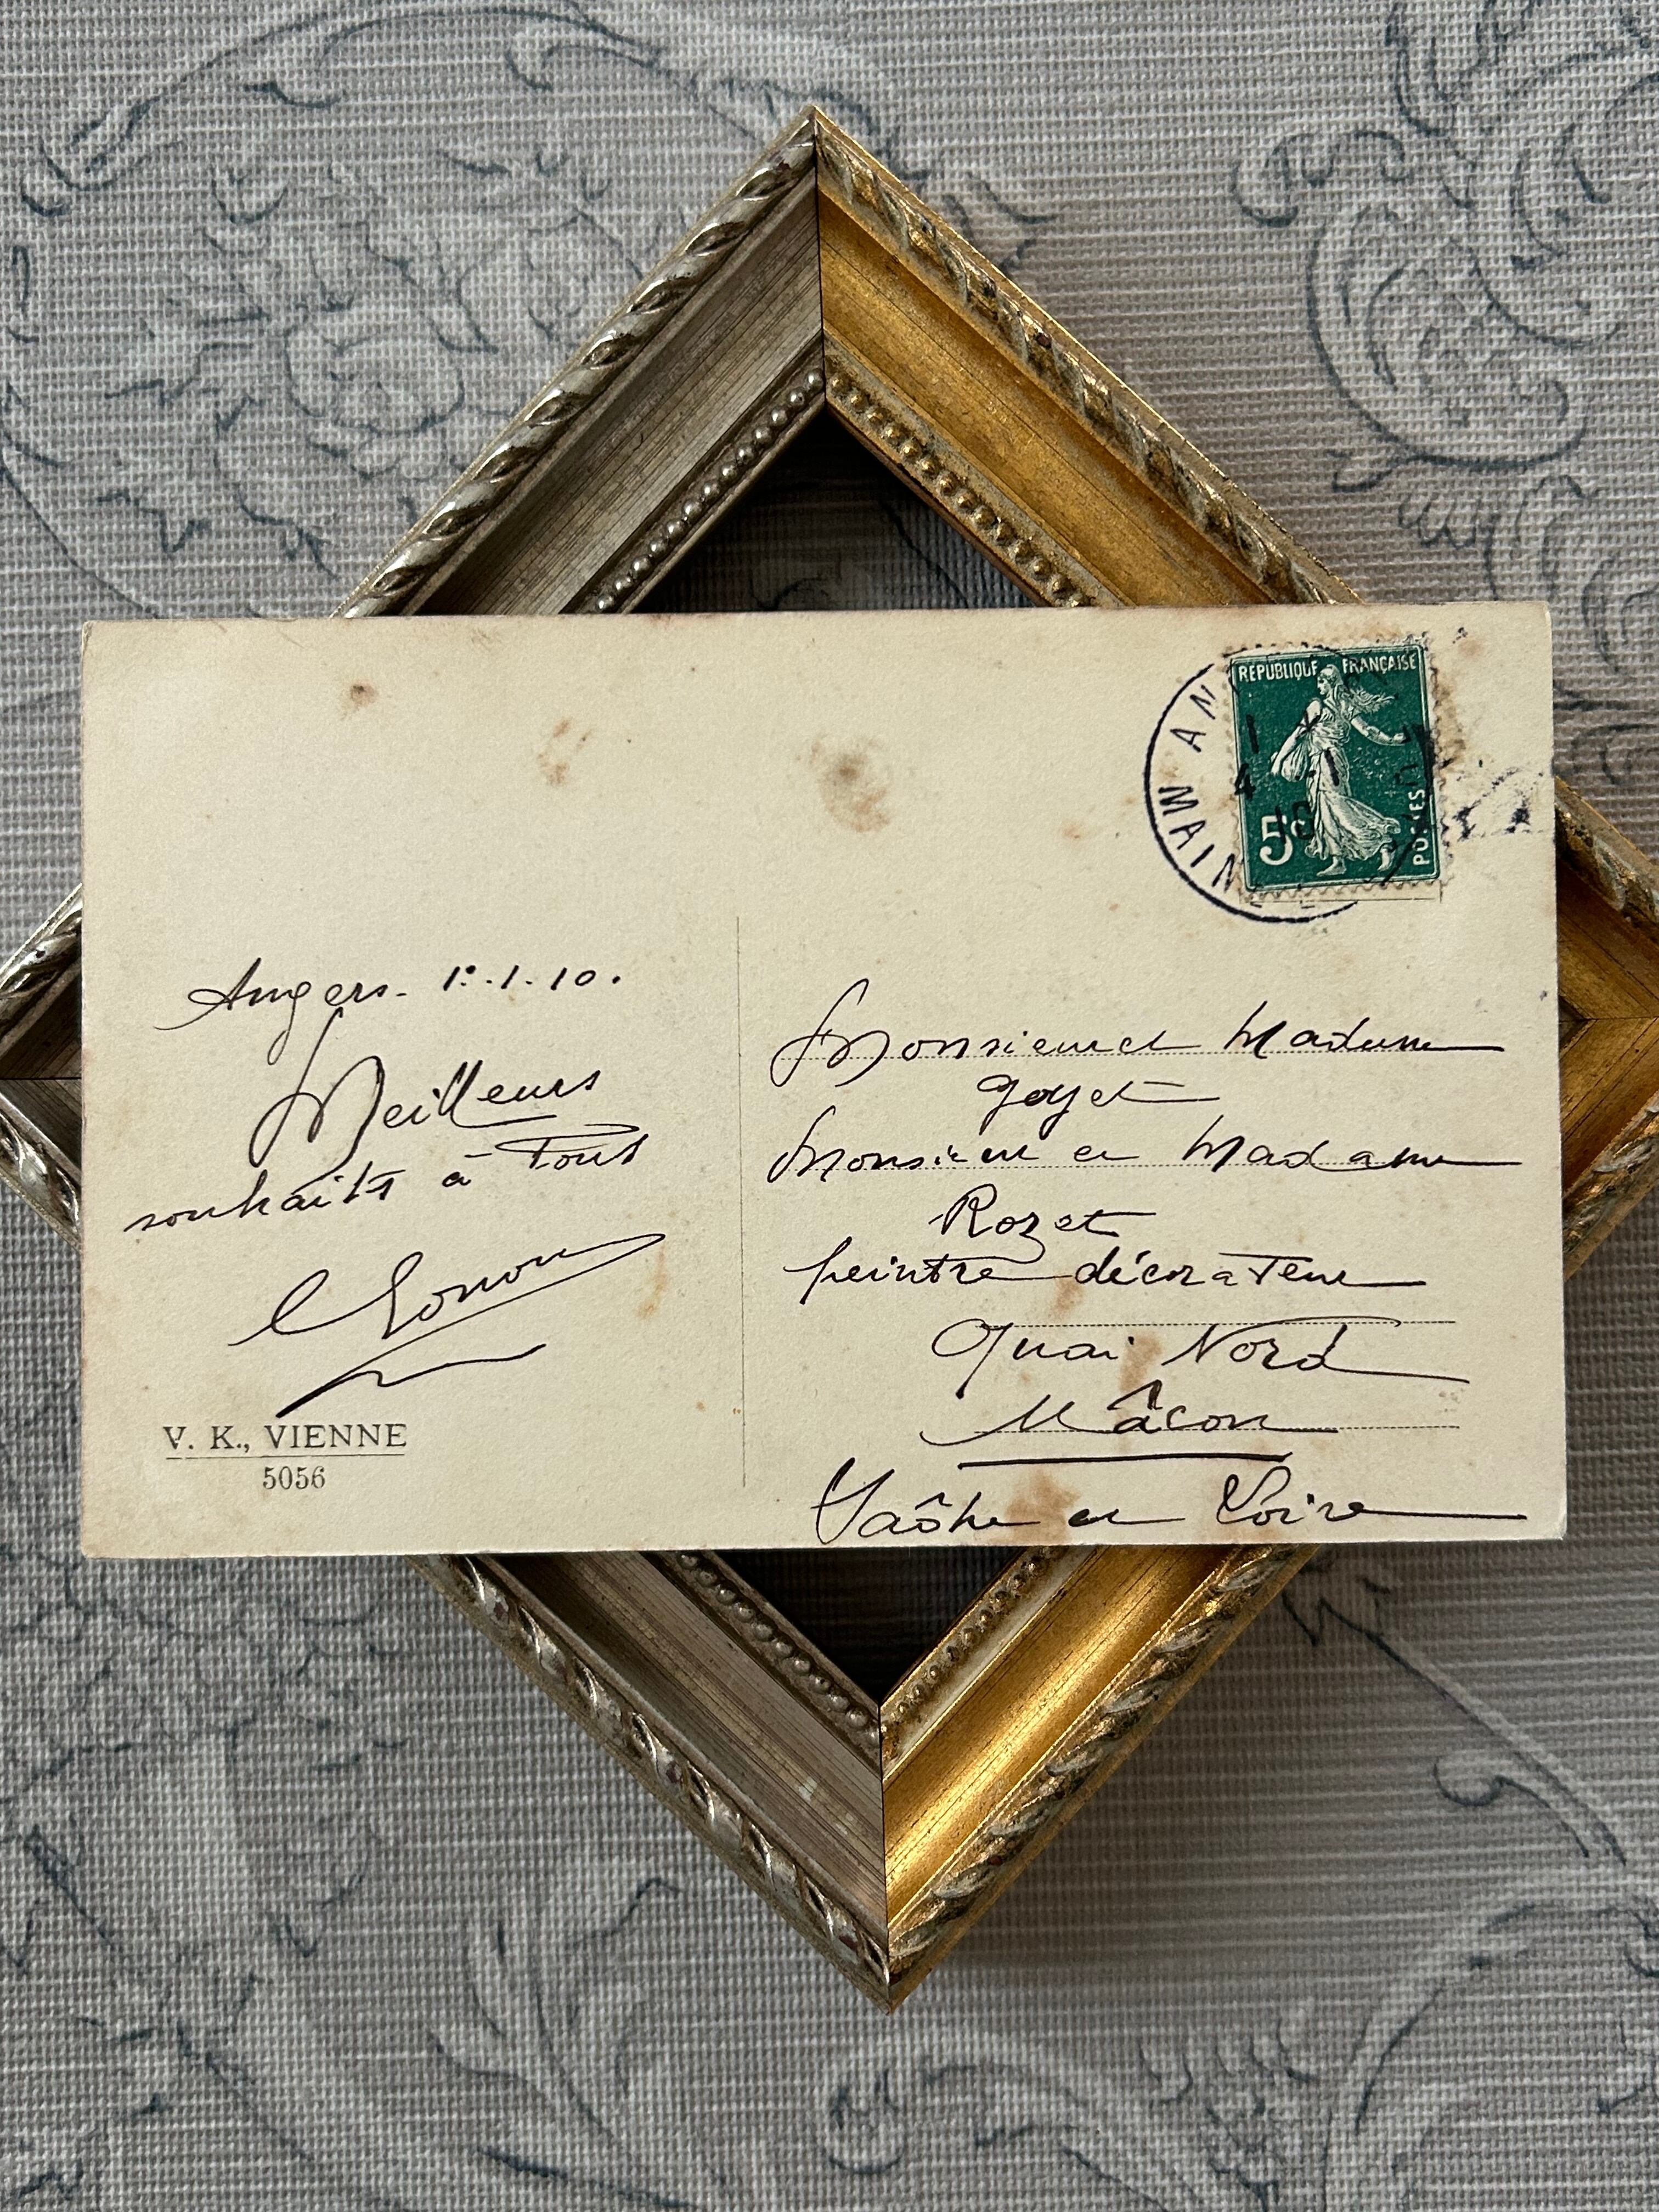 REPUBLIQUE FRANÇAISE
5c
POSTES
AN
MAIN
1
4 -1
10
Angers. 1er.1.10.
Meilleurs
souhaits à Tous
V. K., VIENNE
5056
Monsieur et Madame
Goyet
Monsieur et Madame
Rozet
peintre décorateur
Quai Nord
Mâcon
Saône et Loire